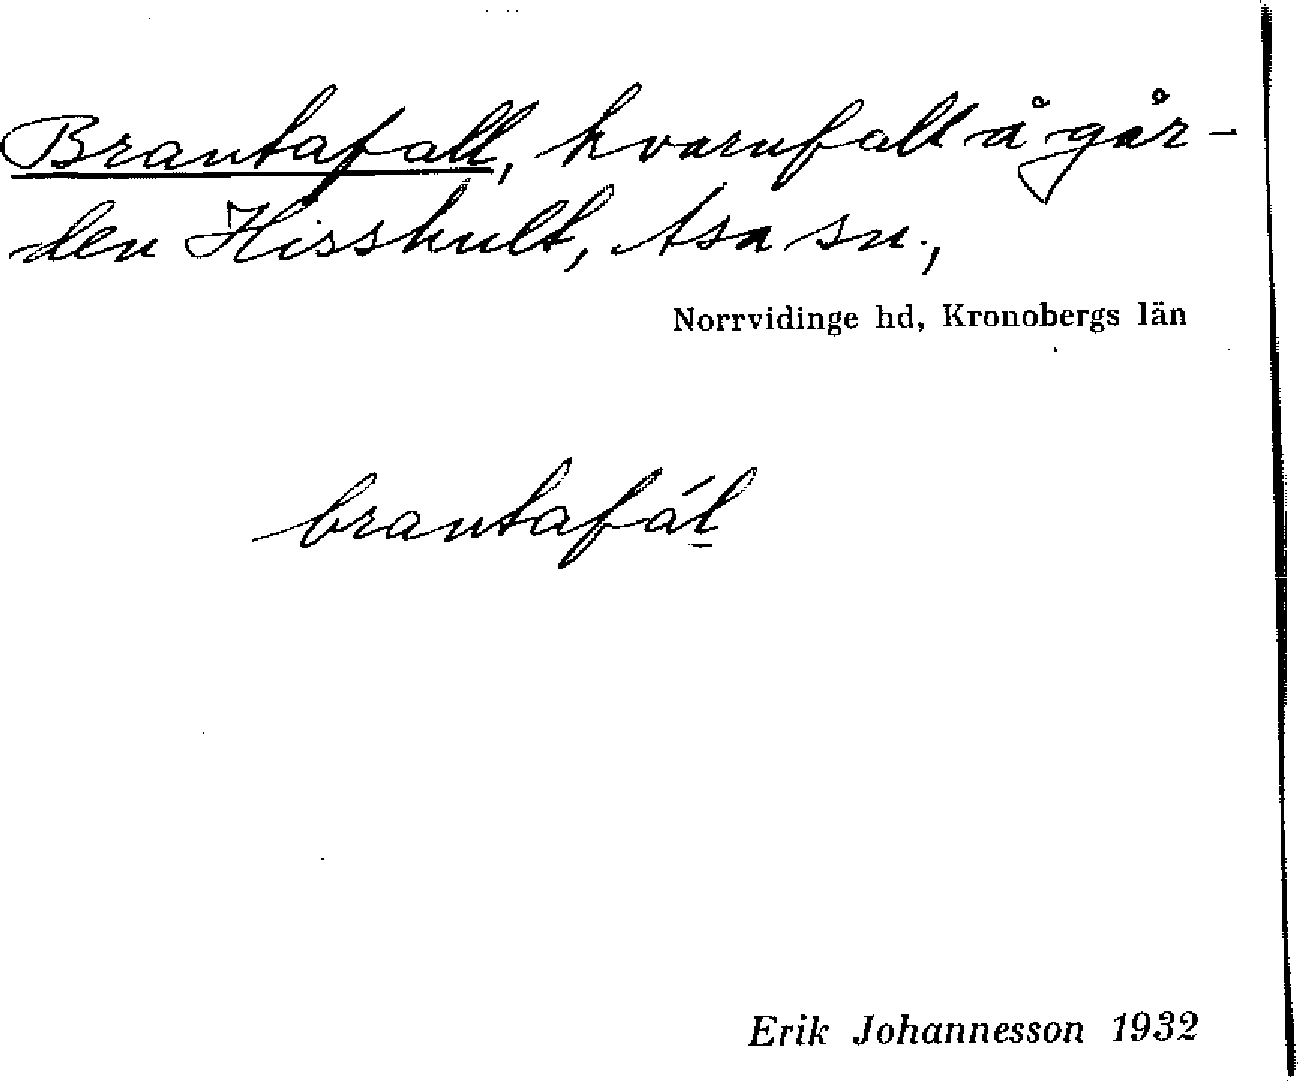 Brantafall, kvarnfall å går-
den Hisshult, Asa sn.,
Norrvidinge hd, Kronobergs län
brantafál
Erik Johannesson 1932